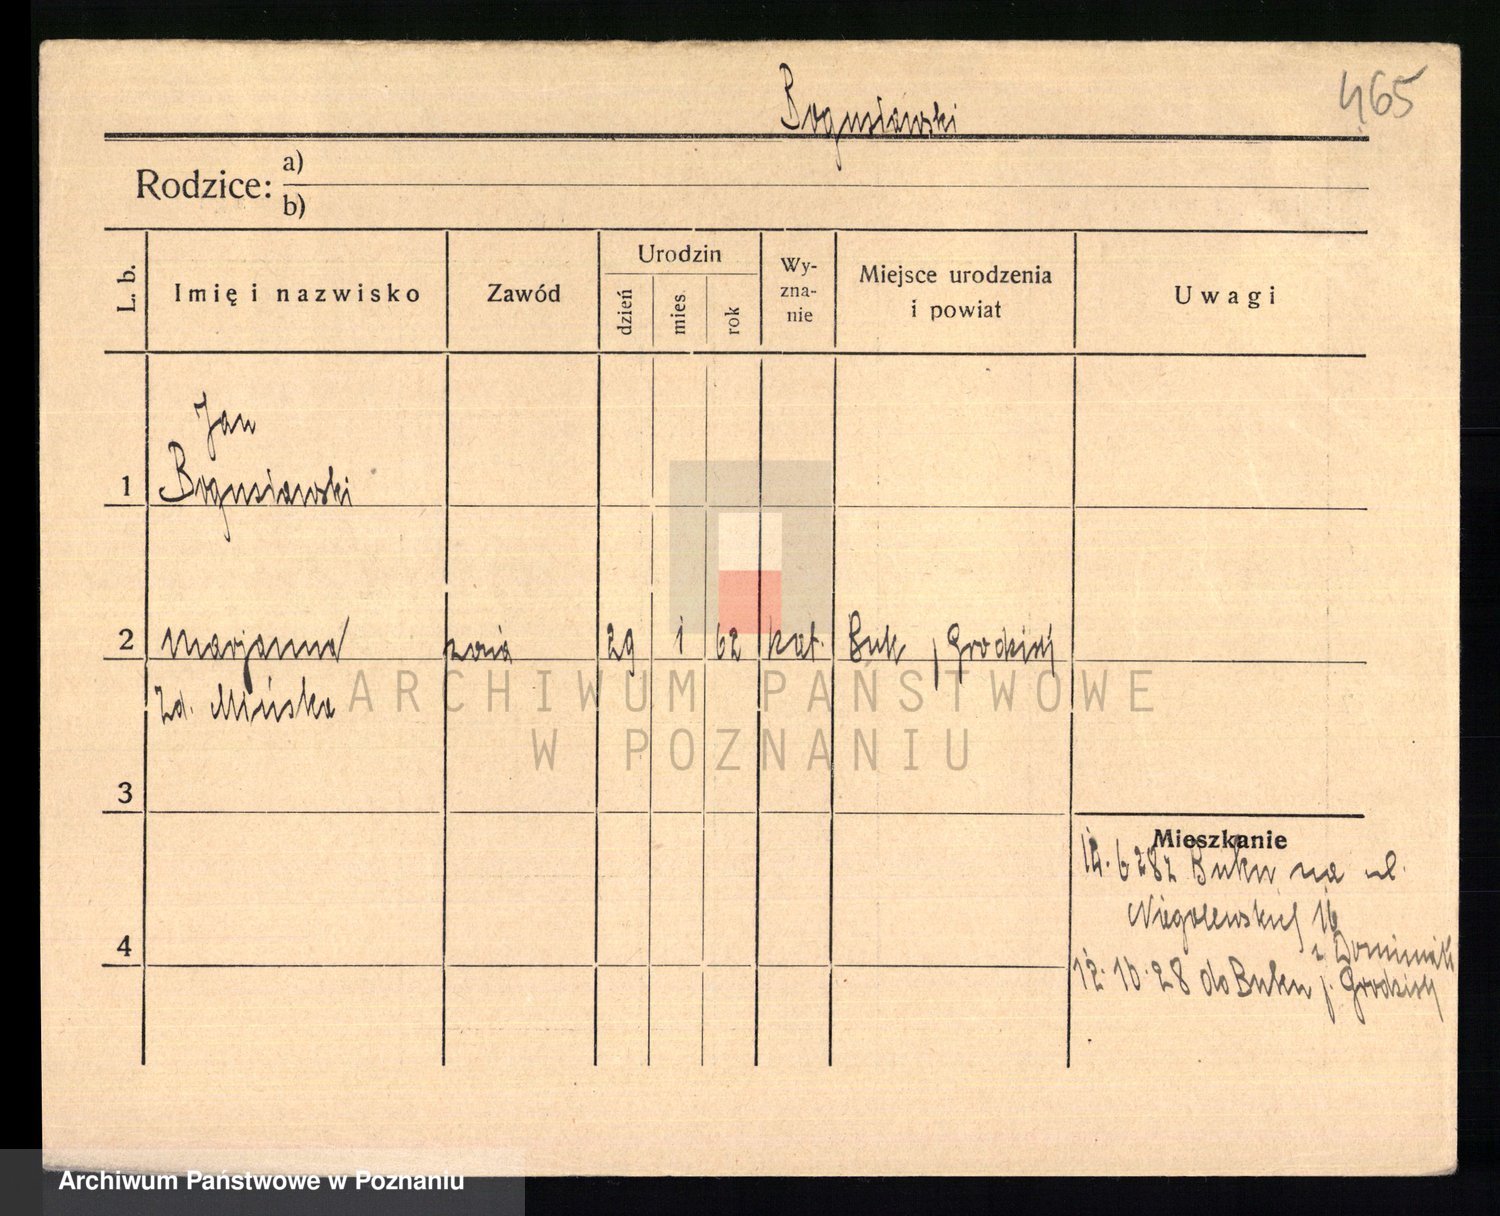 Bogusławski
465
Rodzice: a)
b)
L. b.
Imię i nazwisko
Zawód
Urodzin
dzień
mies.
rok
Wy-
zna-
nie
Miejsce urodzenia
i powiat
Uwagi
Jan
1 Bogusławski
2 Marjanna 29 1 62 kat. Buk, Grodzisk
zd. Mińska
ARCHIWUM PAŃSTWOWE
W POZNANIU
3
Mieszkanie
6 28 z Buku na ul.
Niegolewskich 16
4
12.10.28 do Buku p. Grodzisk
Archiwum Państwowe w Poznaniu